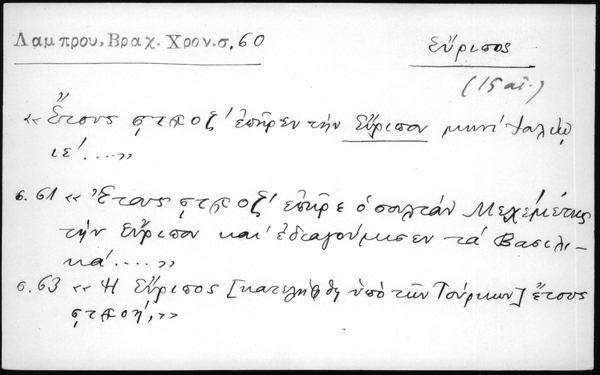 Λαμπρου, Βραχ. Χρον. σ. 60
Εὔριπος
(15 αἰ.)
«Ἔτους ϛτϡοζ' ἐπῆρεν τὴν Εὔριπον μηνὶ Ἰουλίῳ
ιε'....»
σ. 61 «Ἔτους ϛτϡοζ' ἐπῆρε ὁ σουλτὰν Μεχεμέτης
τὴν Εὔριπον καὶ ἐδιαγούμισεν τὰ Βασιλι-
κά.....»
σ. 63 «Ἡ Εὔριπος [κατελήφθη ὑπὸ τῶν Τούρκων] ἔτους
ϛτϡοη',»